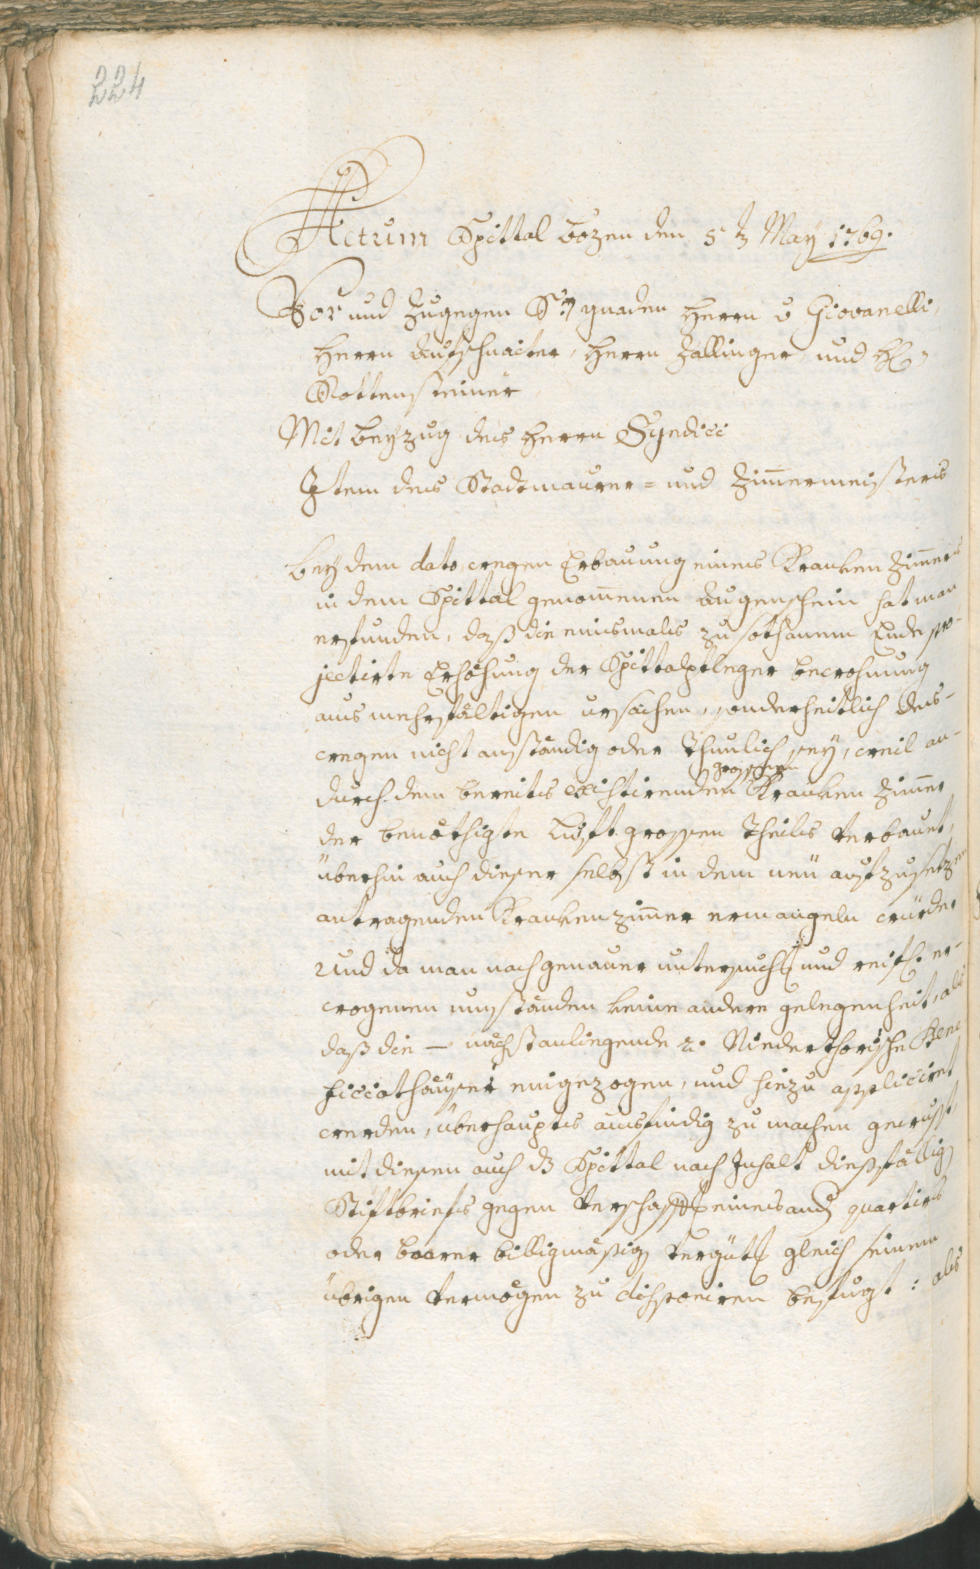 224
Actum Spittal Bozen den 5t. May 1769.
Vor und zugegen Sr. gnaden Herrn v Giovanelli,
Herrn Gutschnaiter, Herrn Zallinger und H.
Rottensteiner
Mit beyzug des Herrn Syndici
Item des Stadtmaurer- und Zimmermeisters
bey dem dato wegen Erbauung eines Kranken Zimmers
in dem Spittal genommenen Augenschein hat man
erfunden, daß die einsmals zu sothanem Ende pro-
jectirte Erhöhung der Spittalpfleger bewohnung
aus mehrfältigen ursachen, sonderheitlich des-
wegen nicht anständig oder thunlich sey, weil an-
durch dem bereits existirenden Kranken Zimmer
der benöthigte Luft grossen Theils verbauet,
überhin auch dieser selbst in dem neü aufzusetzen
antragenden Krankenzimmer ermangeln würde
Und da man nach genauer untersuch. und reifl. er-
wogenen umständen keine andere gelegenheit, als
daß die — nächstanliegende 2. Niederthorische Bene
ficiathäuser eingezogen, und hiezu appliciret
werden, überhaupts ausfindig zu machen gewusst,
mit diesen auch ds Spittal nach Inhalt diesfällig
Stiftbriefs gegen Verschaff. eines and. quartirs
oder baarer billigmäßig. Vergüt. gleich seinem
übrigen Vermögen zu disponiren befugt: als